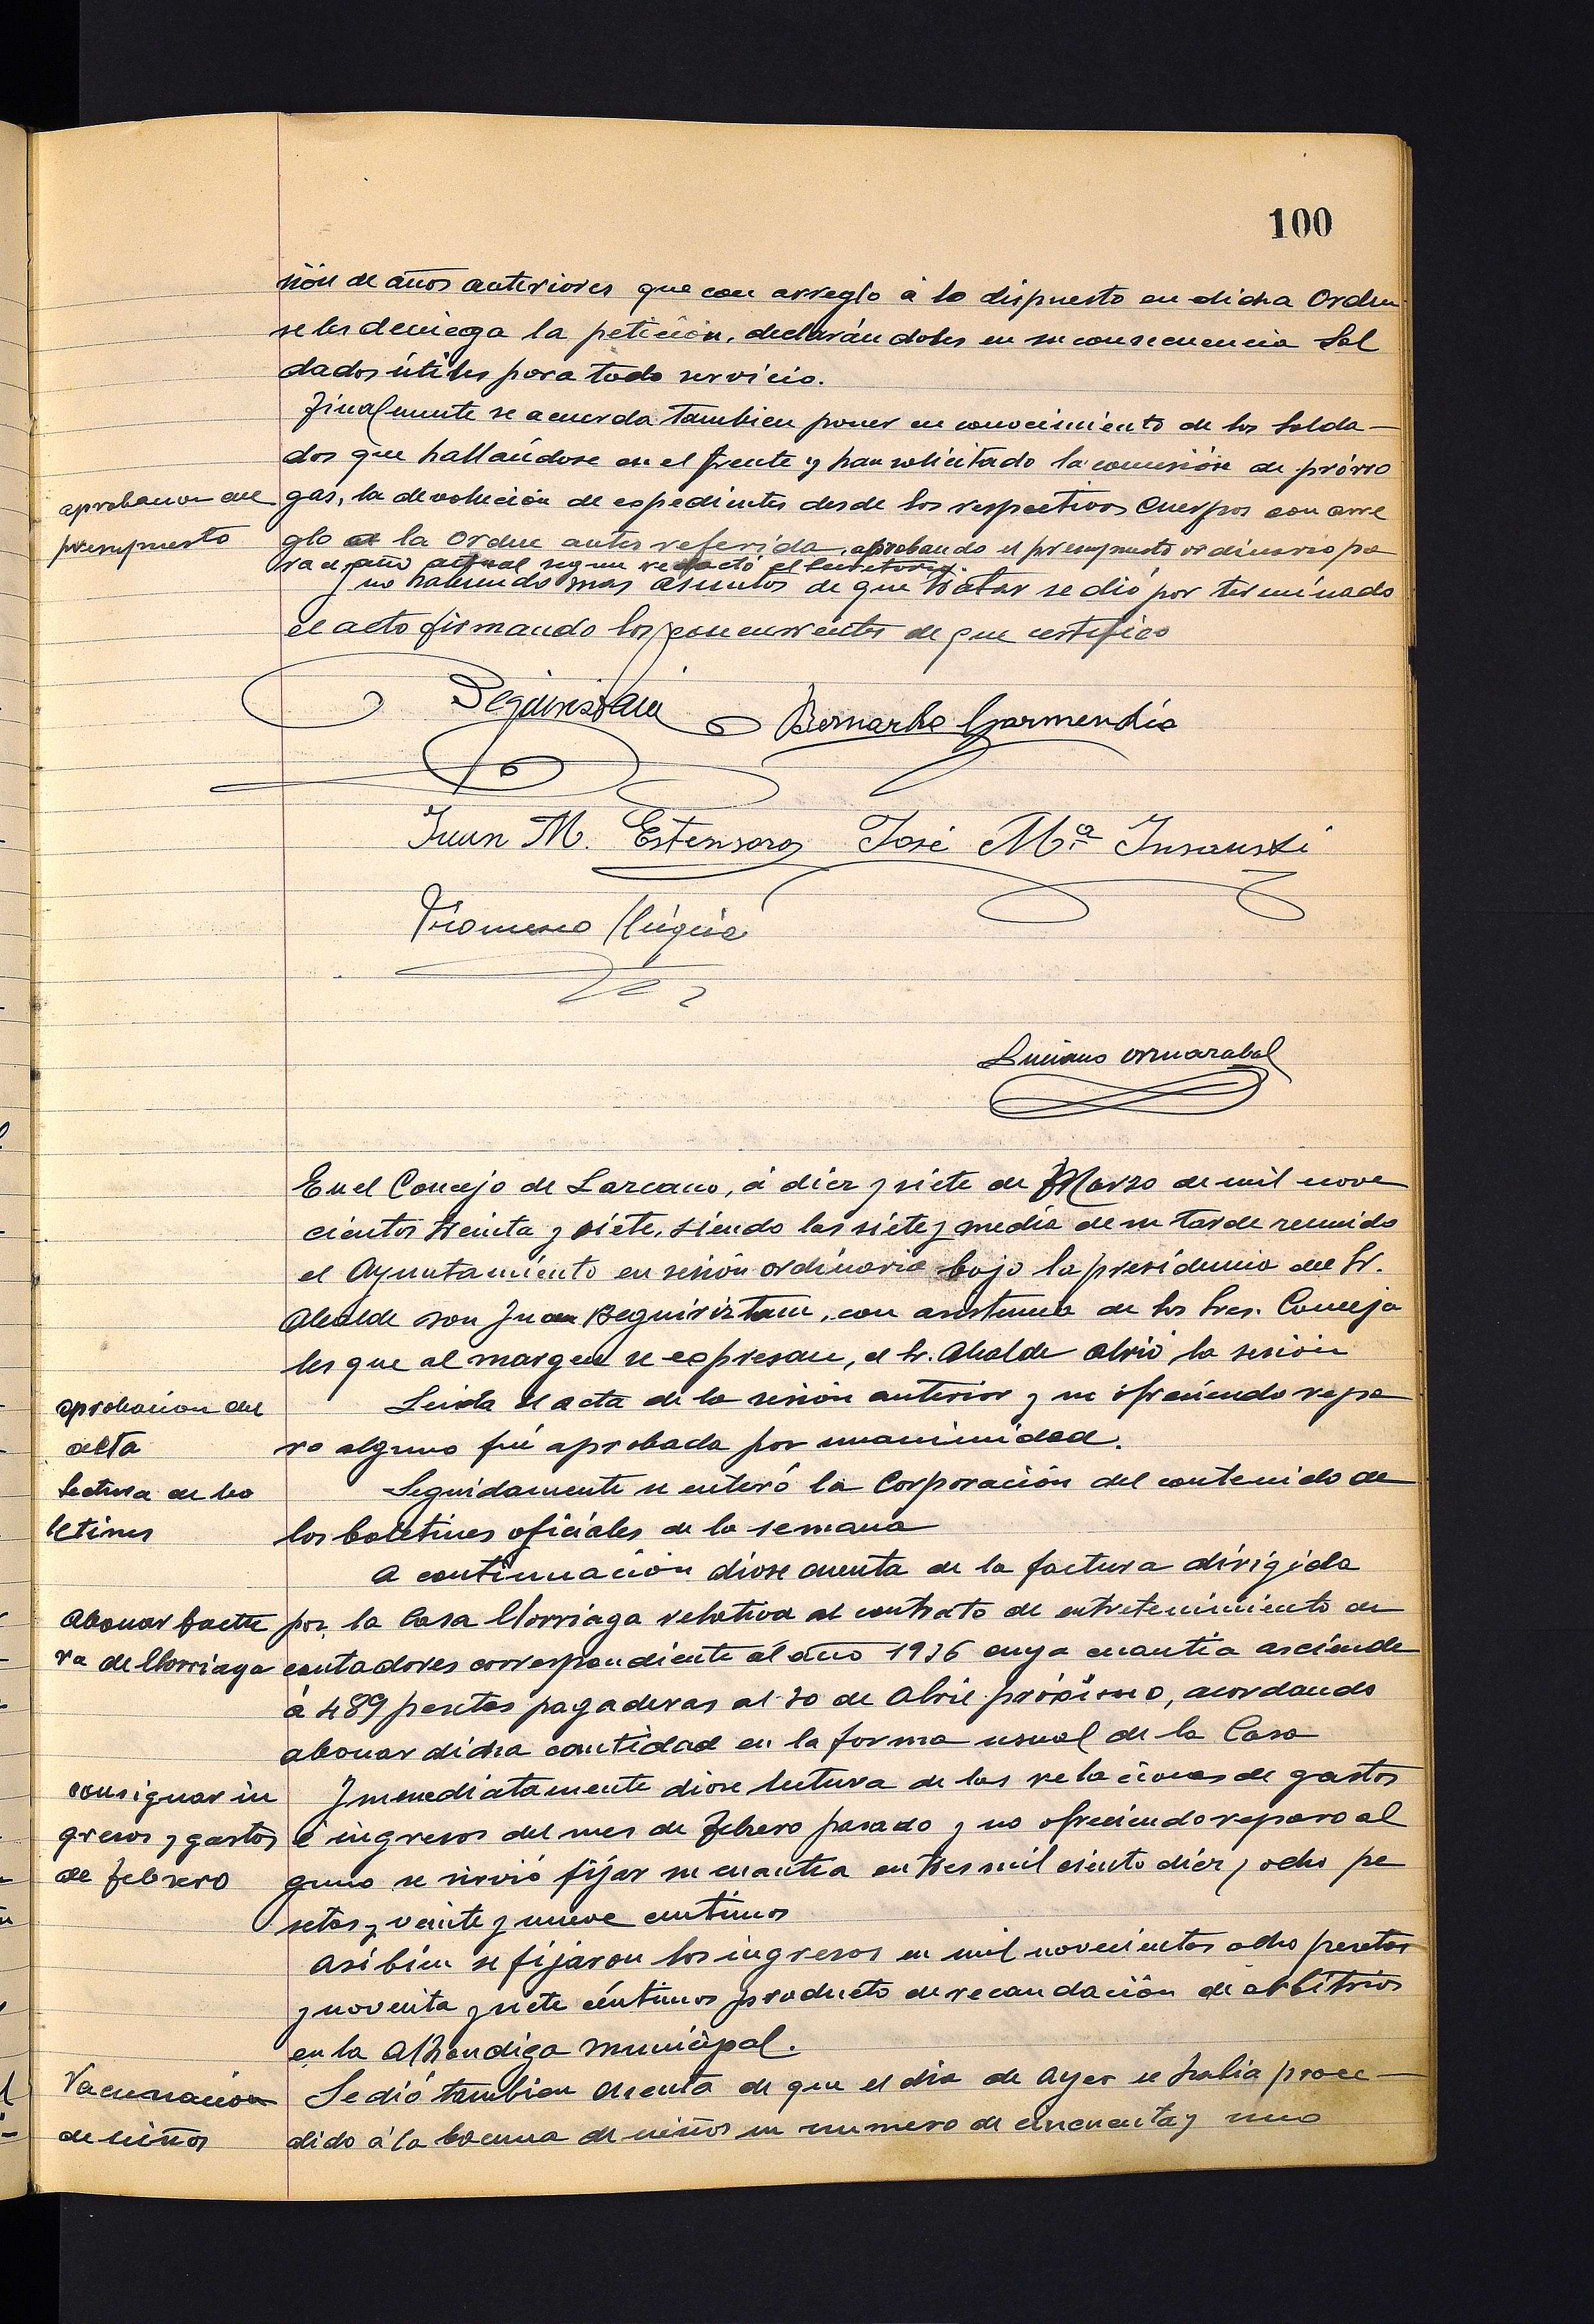 100
sión de años anteriores que con arreglo á lo dispuesto en dicha Orden
se les deniega la petición, declarándoles en su consecuencia Sol
dados útiles para todo servicio.
Finalmente se acuerda tambien poner en conocimiento de los Solda-
dos que hallándose en el frente y han solicitado la concesión de prórro
aprobacion del
gas, la devolución de expedientes desde los respectivos Cuerpos con arre
presupuesto
glo a la Orden antes referida, aprobando el presupuesto ordinario pa
ra el año actual segun redactó el Secretario.
Y no habiendo mas asuntos de que tratar se dió por terminado
el acto firmando los concurrentes de que certifico
Beguiristain
Bernardo Garmendia
Juan M. Estensoro
José Mª Insausti
Luciano Ormazabal
En el Concejo de Lazcano, á diez y siete de Marzo de mil nove
cientos treinta y siete, siendo las siete y media de su tarde reunido
el Ayuntamiento en sesión ordinaria bajo la presidencia del Sr.
Alcalde Don Juan Beguiristain, con asistencia de los Sres. Conceja
les que al margen se expresan, el Sr. Alcalde abrió la sesión
aprobacion del
Leida el acta de la sesión anterior y no ofreciendo repa
acta
ro alguno fué aprobada por unanimidad.
Lectura de bo
Seguidamente se enteró la Corporación del contenido de
letines
los boletines oficiales de la semana
A continuación diose cuenta de la factura dirigida
Abonar factu
por la Casa Illorriaga relativa al contrato de entretenimiento de
ra de Illorriaga
contadores correspondiente al año 1936 cuya cuantia asciende
á 489 pesetas pagaderas al 30 de Abril próximo, acordando
abonar dicha cantidad en la forma usual de la Casa
consignar in
Inmediatamente diose lectura de las relaciones de gastos
gresos y gastos
é ingresos del mes de Febrero pasado y no ofreciendo reparo al
de febrero
guno se sirvió fijar su cuantia en tres mil ciento diez y ocho pe
setas y veinte y nueve centimos
Asi bien se fijaron los ingresos en mil novecientas ocho pesetas
y noventa y siete céntimos producto de recaudación de arbitrios
en la Alhondiga Municipal.
Vacunacion
Se dió tambien cuenta de que el dia de ayer se habia proce-
de niños
dido á la vacuna de niños en numero de cincuenta y uno